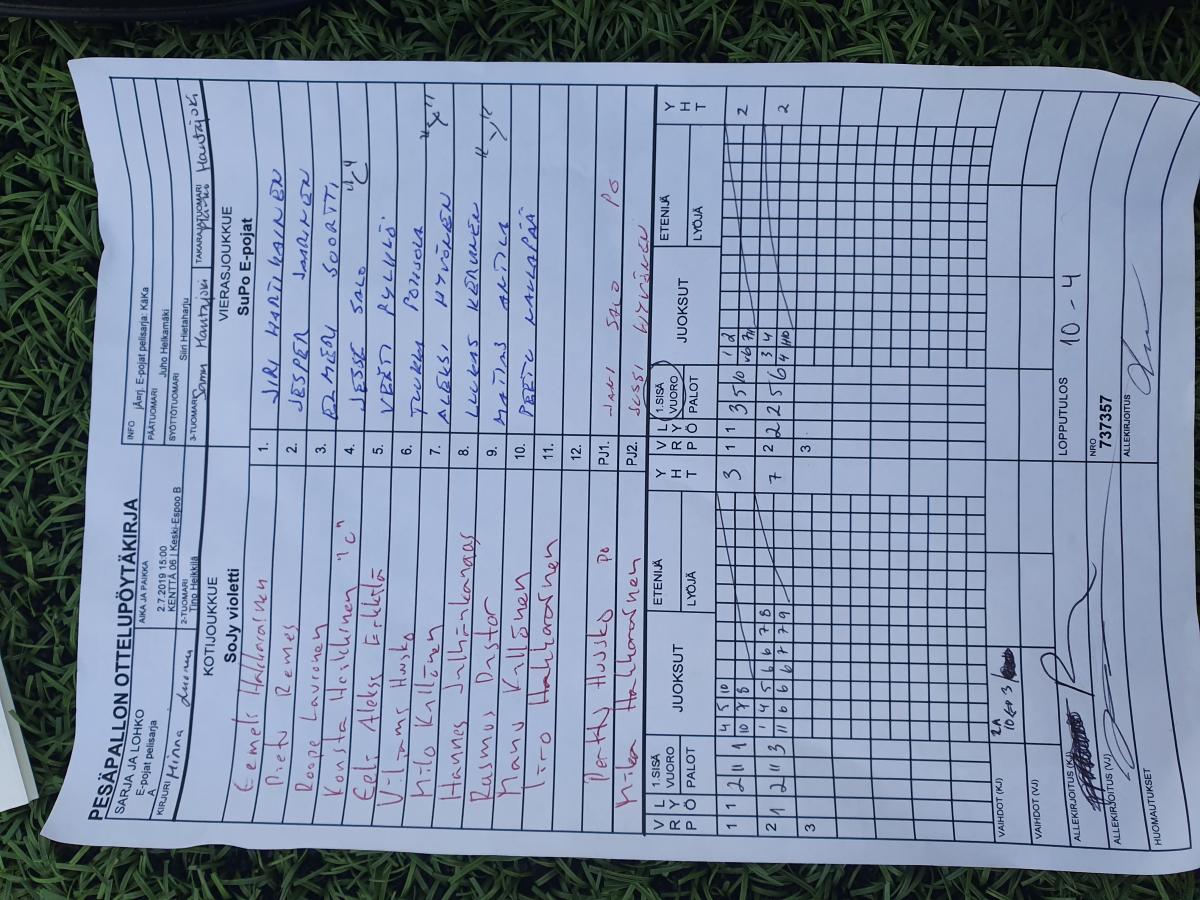 PESÄPALLON OTTELUPÖYTÄKIRJA
SARJA JA LOHKO
E-pojat pelisarja
A
AIKA JA PAIKKA
2.7.2019 15:00
KENTTÄ 06 | Keski-Espoo B
INFO jAorj. E-pojat pelisarja: KäKa
PÄÄTUOMARI Juho Helkamäki
SYÖTTÖTUOMARI Siiri Hietaharju
KIRJURI Minna
2-TUOMARI Tino Heikkilä
3-TUOMARI Samu Hautajoki
TAKARAJATUOMARI Hautajoki
KOTIJOUKKUE
SoJy violetti
VIERASJOUKKUE
SuPo E-pojat
Eemeli Hakkarainen 1. JIRI HARTIKAINEN
Pietu Remes 2. JESPER SAARINEN
Roope Lavronen 3. ELMERI SUORTTI
Konsta Heiskinen "C" 4. JESSE SALO "C"
Eeli Aleksi Erkkilä 5. VERTI PYLKKÖ
Viljami Husko 6. TUUKKA
Milo Kyllönen 7. ALEKSI HYVÖNEN
Hannes 8. LUUKAS KERÄNEN
Rasmus Pastor 9. MATIAS ANTILA
Manu Kyllönen 10. PEETU NAULAPÄÄ
Iiro Hakkarainen 11.
12.
Perttu Husko PO PJ1. JANI SALO PO
Mika Hakkarainen PJ2. JUSSI HYVÖNEN
VRP LYÖ 1.SISÄ VUORO PALOT JUOKSUT ETENIJÄ LYÖJÄ YHT
VRP LYÖ 1.SISÄ VUORO PALOT JUOKSUT ETENIJÄ LYÖJÄ YHT
1 1 2 11 1 4 5 10 3
10 7 8
1 1 3 5 10 1 2 2
v6 7H
2 1 2 11 3 1 4 5 6 6 7 8 7
11 6 6 6 7 7 9
2 2 2 5 6 3 4 2
4
3
3
VAIHDOT (KJ)
VAIHDOT (VJ)
LOPPUTULOS 10 - 4
NRO
737357
ALLEKIRJOITUS (KJ)
ALLEKIRJOITUS (VJ)
ALLEKIRJOITUS
HUOMAUTUKSET